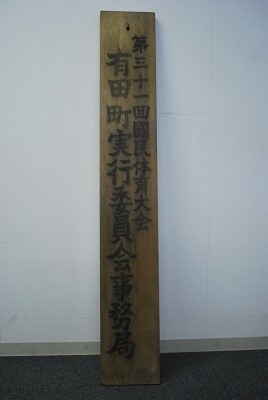 第三十一回國民体育大会
有田町実行委員会事務局